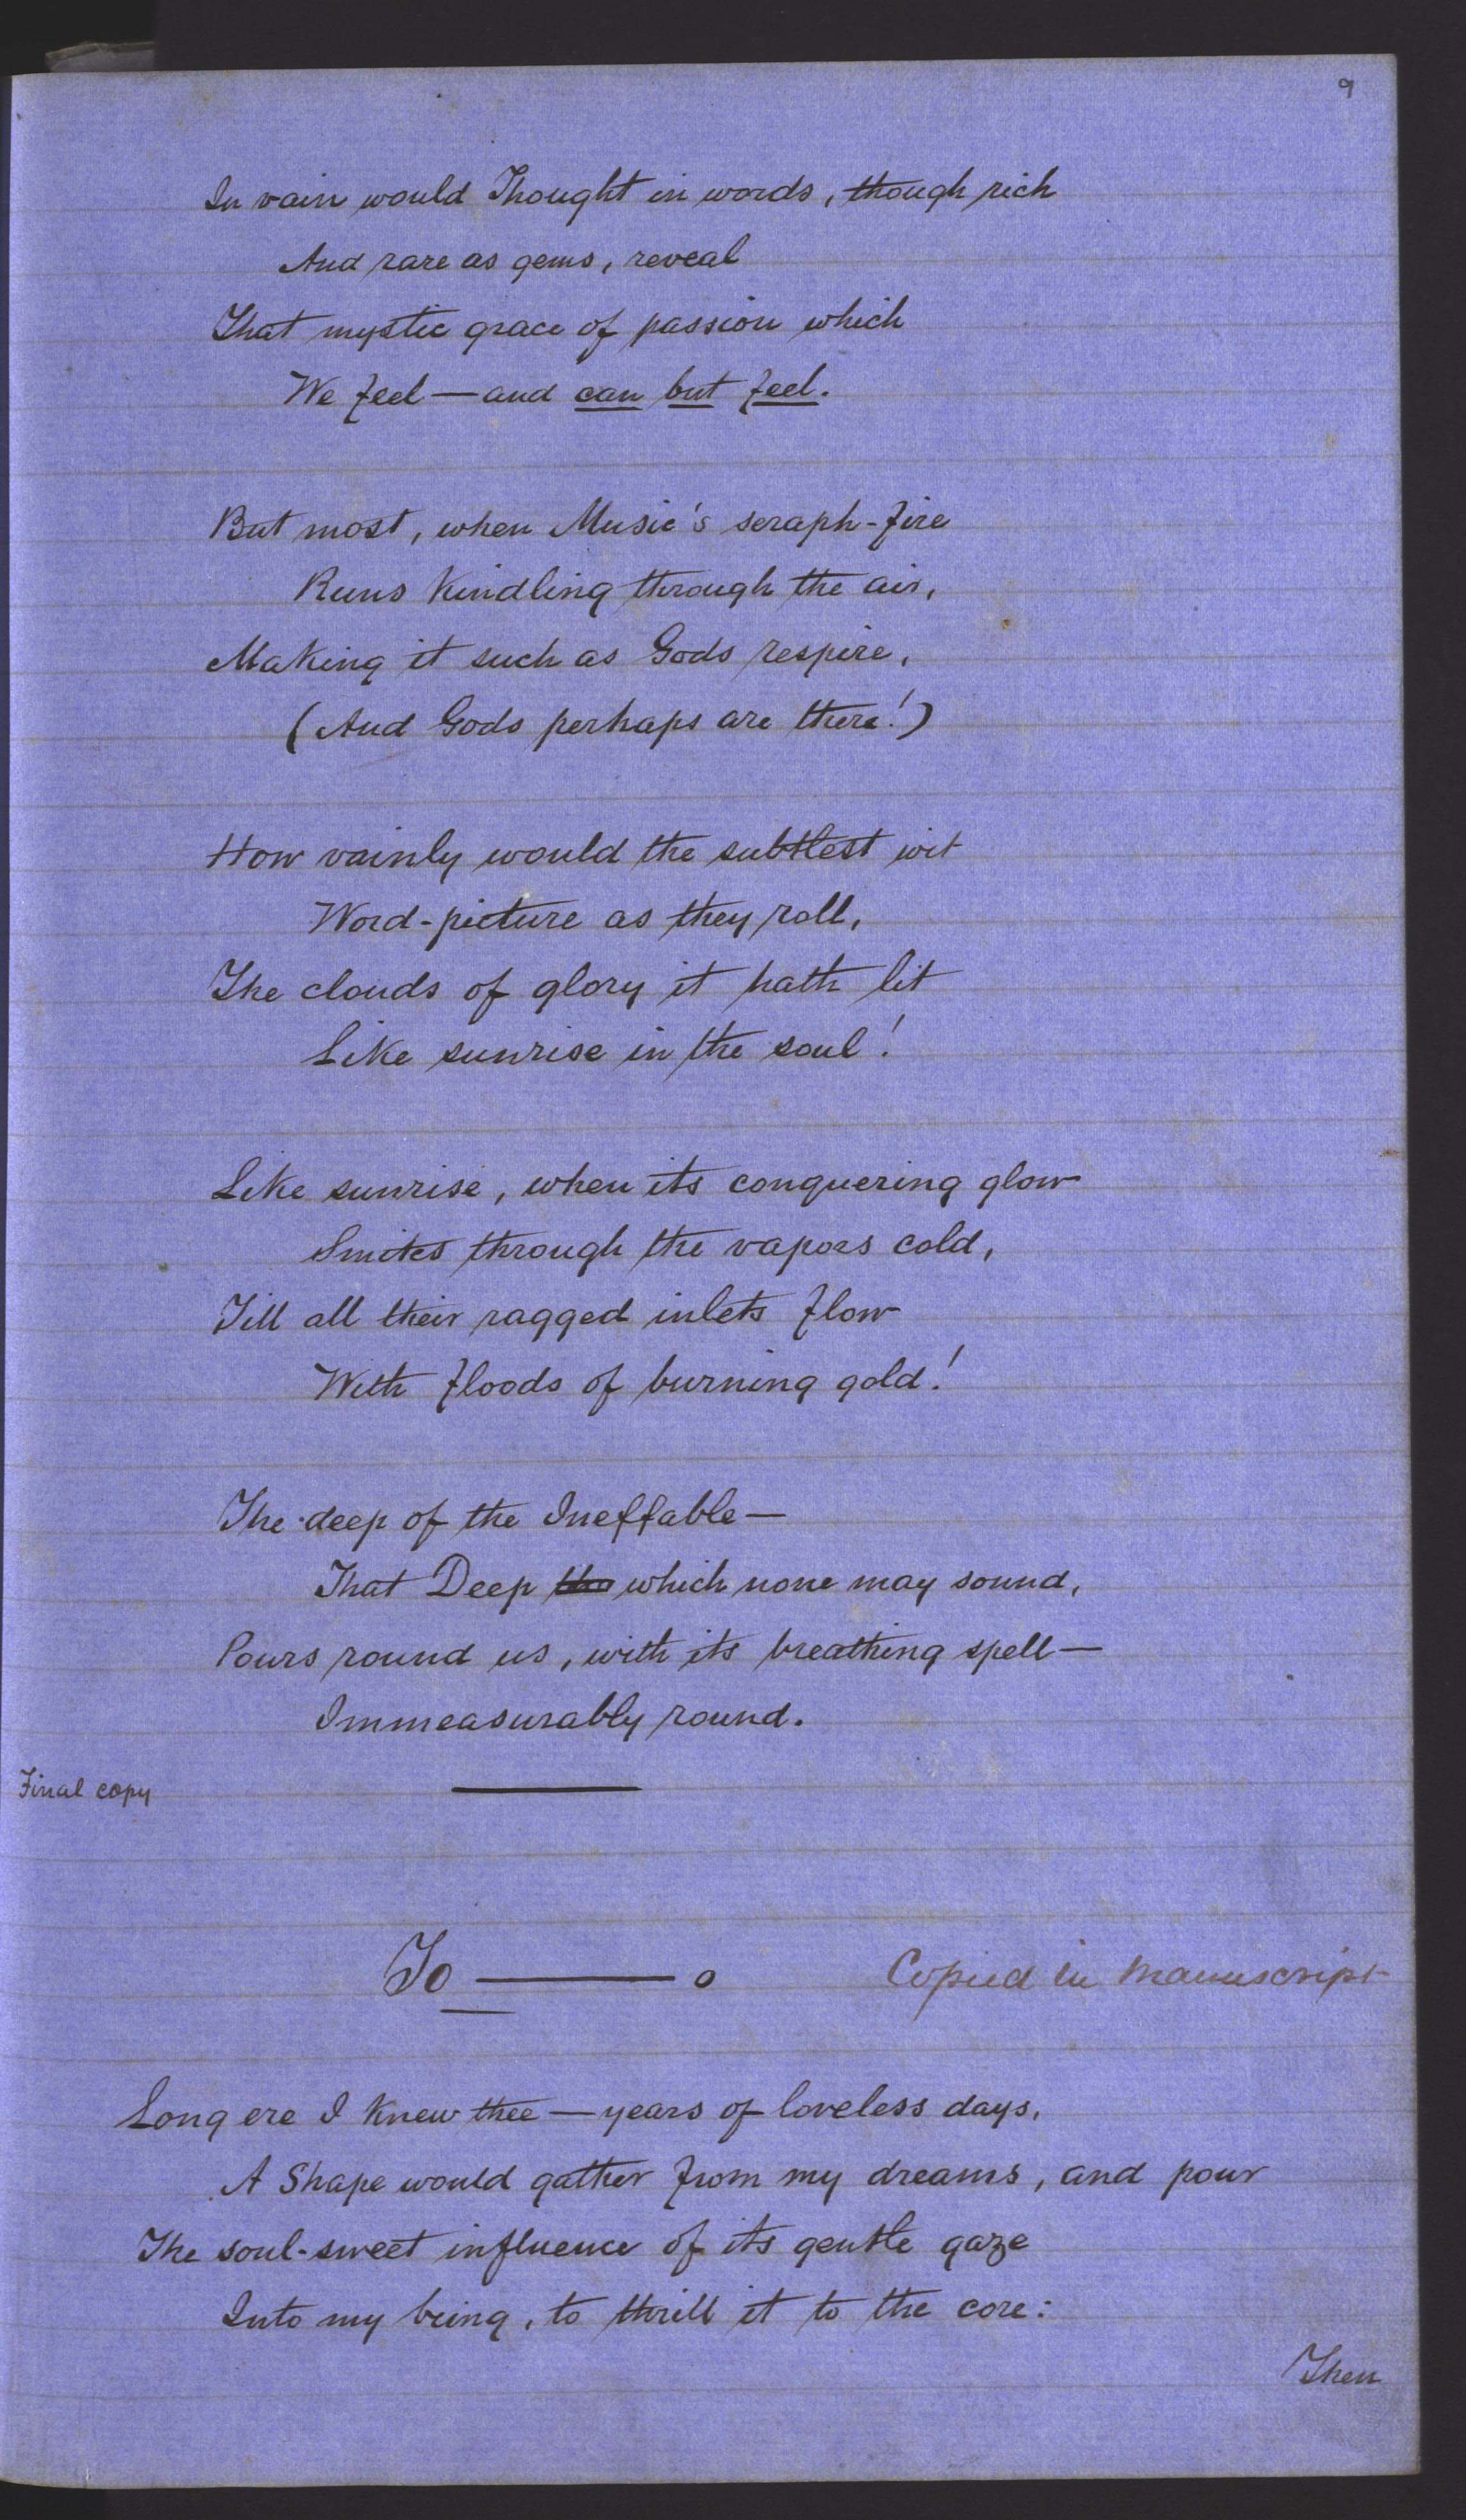 9
In vain would Thought in words, though rich
And rare as gems, reveal
That mystic grace of passion which
We feel — and can but feel.
But most, when Music's seraph-fire
Runs kindling through the air,
Making it such as Gods respire,
(And Gods perhaps are there!)
How vainly would the subtlest wit
Word-picture as they roll,
The clouds of glory it hath lit
Like sunrise in the soul!
Like sunrise, when its conquering glow
Smites through the vapors cold,
Till all their ragged inlets flow
With floods of burning gold!
The deep of the Ineffable—
That Deep tho which none may sound,
Pours round us, with its breathing spell—
Immeasurably round.
Final copy
To ——— o Copied in Manuscript
Long ere I knew thee — years of loveless days,
A Shape would gather from my dreams, and pour
The soul-sweet influence of its gentle gaze
Into my being, to thrill it to the core:
Then